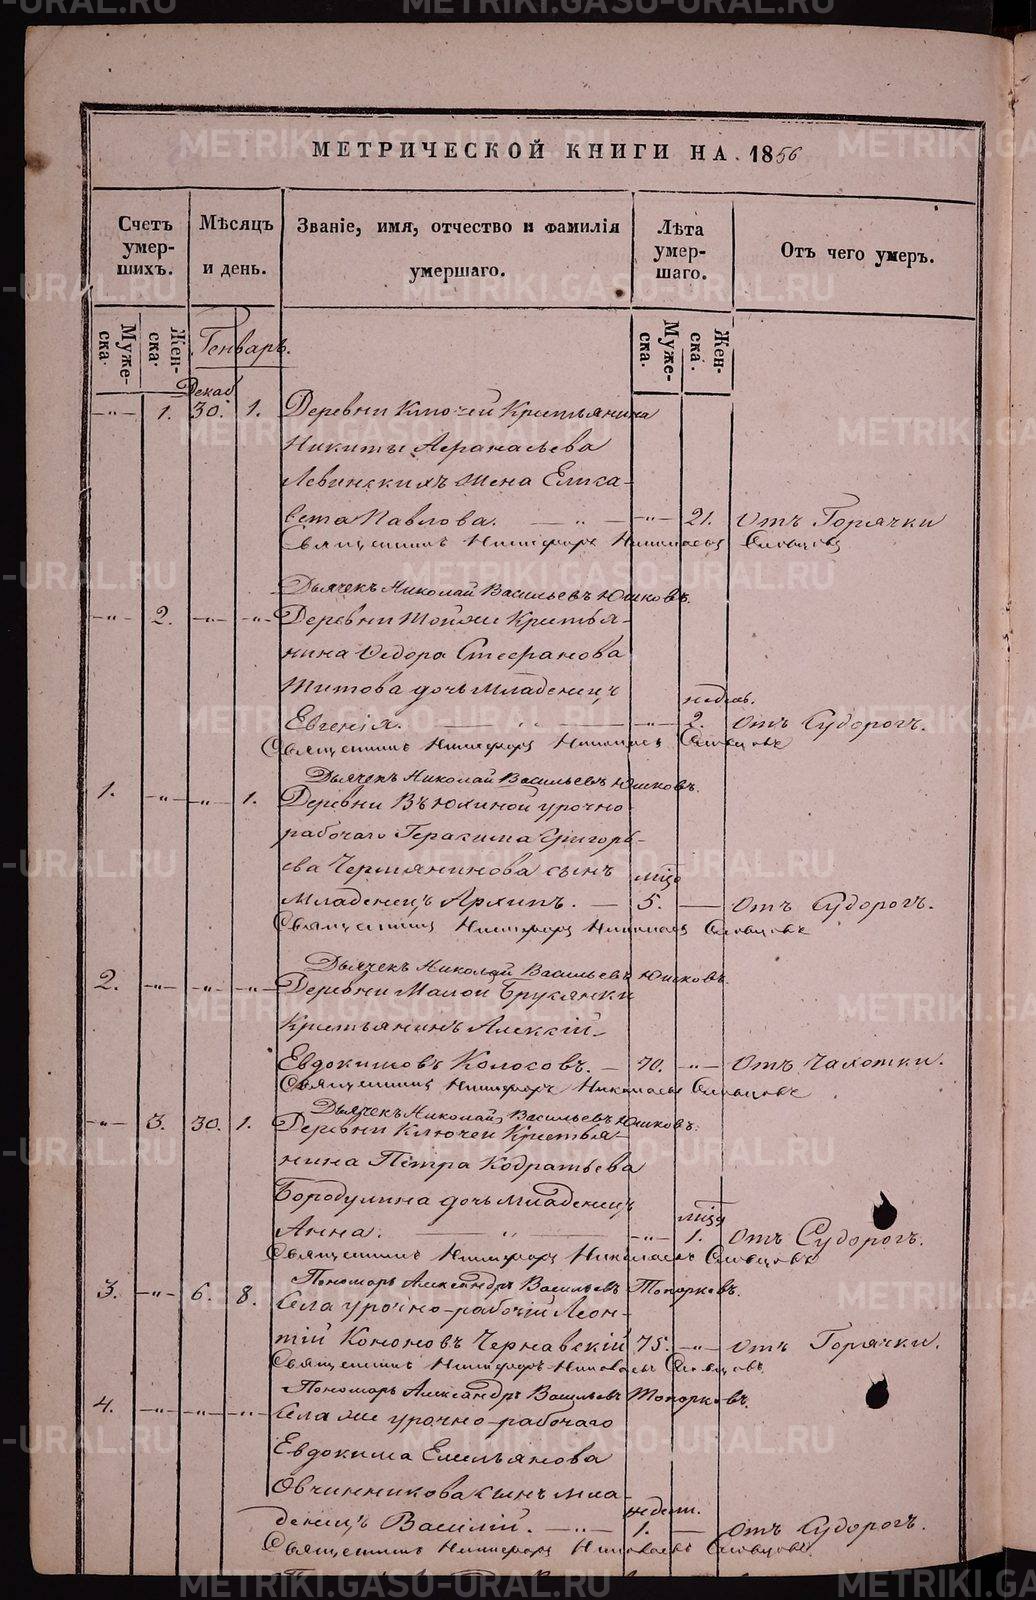 МЕТРИЧЕСКОЙ КНИГИ НА 1856
Счетъ умер-шихъ.
Мѣсяцъ и день.
Званіе, имя, отчество и фамилія умершаго.
Лѣта умер-шаго.
Отъ чего умеръ.
Муже-ска.
Жен-ска.
Генварь.
Муже-ска.
Жен-ска.
Декаб
-"- 1. 30. 1. Деревни Ключей Крестьянина
Никиты Афанасьева
Левинскихъ жена Елиса-
вета Павлова. -"- 21. Отъ Горячки
Священникъ Никифоръ Николаевъ Словцовъ
Дьячекъ Николай Васильевъ Юшковъ.
-"- 2. -"- -"- Деревни Тойжи Крестья-
нина Ѳедора Стефанова
Титова дочь младенецъ
недель.
Евгенія. -"- 2. Отъ Судорогъ.
Священникъ Никифоръ Николаевъ Словцовъ
Дьячекъ Николай Васильевъ Юшковъ.
1. -"- -"- 1. Деревни Вьюхиной урочно-
рабочаго Герасима Григорь-
ева Чермянинова сынъ мѣся
Младенецъ Архипъ. - 5. - Отъ Судорогъ.
Священникъ Никифоръ Николаевъ Словцовъ
Дьячекъ Николай Васильевъ Юшковъ.
2. -"- -"- -"- Деревни Малой Брусянки
Крестьянинъ Алексій
Евдокимовъ Колосовъ. - 70. -"- Отъ Чахотки.
Священникъ Никифоръ Николаевъ Словцовъ
Дьячекъ Николай Васильевъ Юшковъ.
-"- 3. 30. 1. Деревни Ключей Крестья-
нина Петра Кодратьева
Бородулина дочь младенецъ
мѣся
Анна. -"- 1. Отъ Судорогъ.
Священникъ Никифоръ Николаевъ Словцовъ
Пономарь Александръ Васильевъ Топорковъ.
3. -"- 6. 8. Села урочно-рабочій Леон-
тій Кононовъ Чернавскій 75. -"- Отъ Горячки.
Священникъ Никифоръ Николаевъ Словцовъ
Пономарь Александръ Васильевъ Топорковъ.
4. -"- -"- -"- Села же урочно-рабочаго
Евдокима Емельянова
Овчинникова сынъ мла-
недели.
денецъ Василій. -"- 1. - Отъ Судорогъ.
Священникъ Никифоръ Николаевъ Словцовъ
METRIKI.GASO-URAL.RU